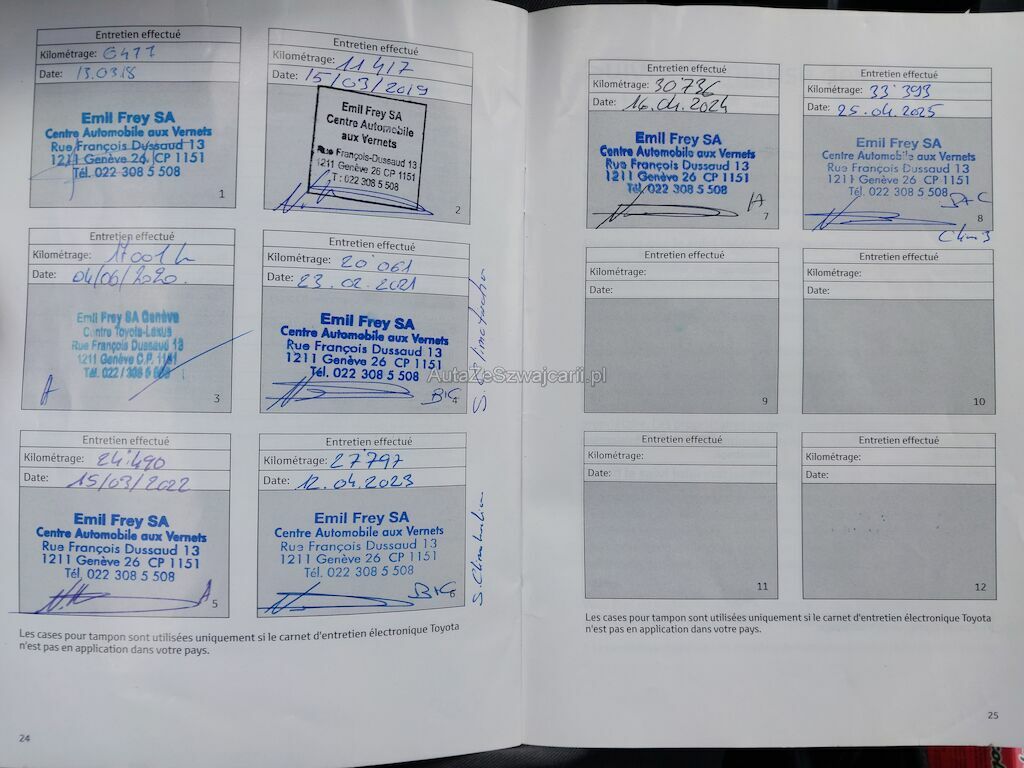 Entretien effectué
Kilométrage: 6477
Date: 13.03.18
Emil Frey SA
Centre Automobile aux Vernets
Rue François Dussaud 13
1211 Genève 26 CP 1151
Tél. 022 308 5 508
1
Entretien effectué
Kilométrage: 11'417
Date: 15/03/2019
Emil Frey SA
Centre Automobile
aux Vernets
Rue François-Dussaud 13
1211 Genève 26 CP 1151
T : 022 308 5 508
2
Entretien effectué
Kilométrage: 17001
Date: 04/06/2020.
Emil Frey SA Genève
Centre Toyota-Lexus
Rue François Dussaud 13
1211 Genève C.P. 1151
Tél. 022 / 308 5 508
A
3
Entretien effectué
Kilométrage: 20'061
Date: 23.02.2021
Emil Frey SA
Centre Automobile aux Vernets
Rue François Dussaud 13
1211 Genève 26 CP 1151
Tél. 022 308 5 508
4
Entretien effectué
Kilométrage: 24'490
Date: 15/03/2022
Emil Frey SA
Centre Automobile aux Vernets
Rue François Dussaud 13
1211 Genève 26 CP 1151
Tél. 022 308 5 508
A
5
Entretien effectué
Kilométrage: 27'797
Date: 12.04.2023
Emil Frey SA
Centre Automobile aux Vernets
Rue François Dussaud 13
1211 Genève 26 CP 1151
Tél. 022 308 5 508
6
Les cases pour tampon sont utilisées uniquement si le carnet d'entretien électronique Toyota
n'est pas en application dans votre pays.
24
Entretien effectué
Kilométrage: 30'736
Date: 16.04.2024
Emil Frey SA
Centre Automobile aux Vernets
Rue François Dussaud 13
1211 Genève 26 CP 1151
Tél. 022 308 5 508
7
Entretien effectué
Kilométrage: 33'393
Date: 25.04.2025
Emil Frey SA
Centre Automobile aux Vernets
Rue François Dussaud 13
1211 Genève 26 CP 1151
Tél. 022 308 5 508
8
Entretien effectué
Kilométrage:
Date:
9
Entretien effectué
Kilométrage:
Date:
10
Entretien effectué
Kilométrage:
Date:
11
Entretien effectué
Kilométrage:
Date:
12
Les cases pour tampon sont utilisées uniquement si le carnet d'entretien électronique Toyota
n'est pas en application dans votre pays.
25
AutaZeSzwajcarii.pl